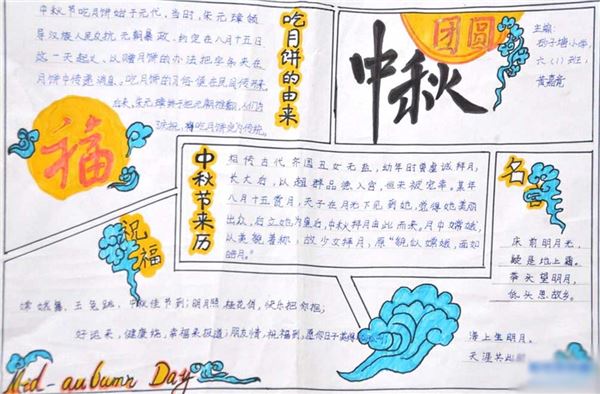 中秋节吃月饼始于元代，当时，朱元璋领
导汉族人民反抗元朝暴政，约定在八月十五日
这一天起义，以赠月饼的办法把字条夹在
月饼中传递消息，吃月饼的习俗便在民间传开来
后来，朱元璋终于把元朝推翻，
庆祝，吃月饼的由来
吃月饼的由来
团圆
中秋
主编：
六（1）班：
福
中秋节来历
相传古代齐国丑女无盐，幼年时曾虔诚拜月，
长大后，以超群品德入宫，但未被宠幸，某年
八月十五赏月，天子在月光下见到她，觉得她美丽
出众，后立她为皇后，中秋拜月由此而来，月中嫦娥，
以美貌著称，故少女拜月，愿"貌似嫦娥，面如
皓月。"
名言
床前明月光，
疑是地上霜。
举头望明月，
低头思故乡。
海上生明月，
天涯共此
祝福
嫦娥舞，玉兔跳，中秋佳节到；明月照，桂花俏，快乐把你抱；
好运来，健康绕，幸福来报道；朋友情，祝福到，愿你日子
Mid-autumn Day